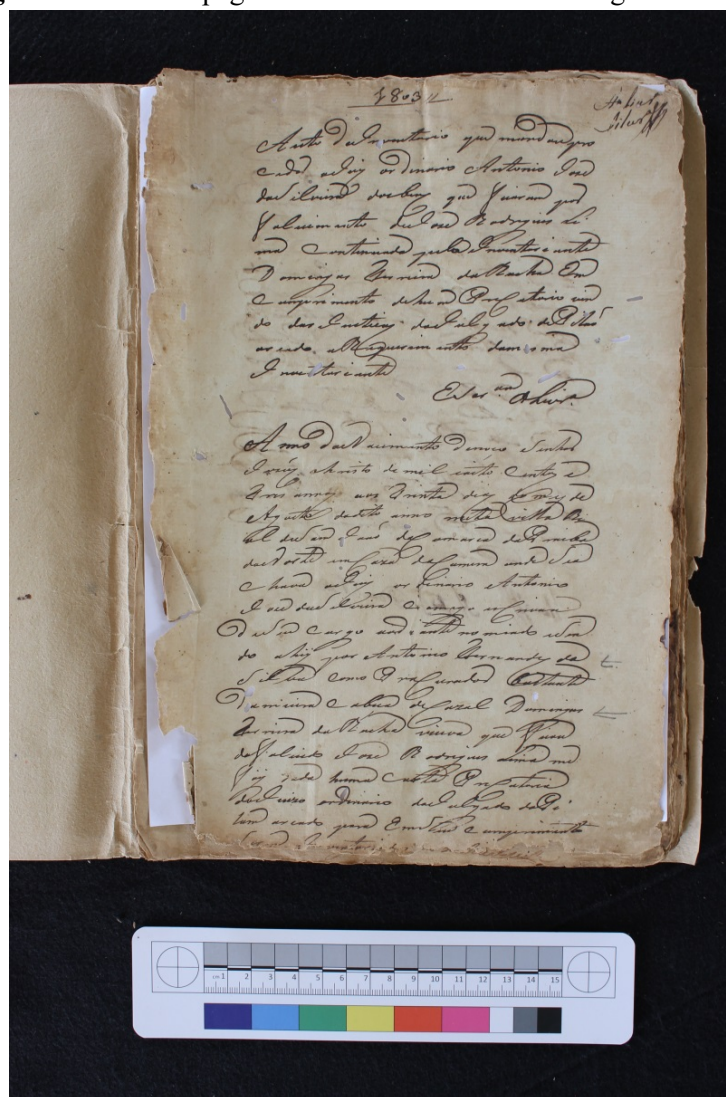 1803
Auto de Inventario que mandou pro
ceder o Juiz ordinario Antonio José
da Silveira dos bens que ficaram por
falecimento de José Rodrigues Li
ma Continuado pela Inventariante
Domingas Ferreira da Rocha Em
Cumprimento de hua Precatoria vin
do das Justiças do Julgado de Pilaõ
arcado a Requerimento da mesma
Inventariante
Escr.am
Anno do Nacimento de nosso Senhor
Jesus christo de mil oito Centos e
tres annos aos trinta dias do mes de
Agosto do dito anno nesta villa
de da Comarca de
do Norte em Caza de Camera onde Se a
chava o Juiz ordinario Antonio
José da Silveira Comigo escrivam
de Seu Cargo ao diante nomiado e Sen
do ahi por Antonio Fernandes da
Silva como Procurador bastante
da meira e Cabeça de Cazal Domingas
Ferreira da Rocha viuva que ficou
do falecido José Rodrigues Lima me
foi huma Carta Precatoria
do Juizo ordinario do Julgado de Pi
lam arcado para Em Seu Cumprimento
1 2 3 4 5 6 7 8 9 10 11 12 13 14 15